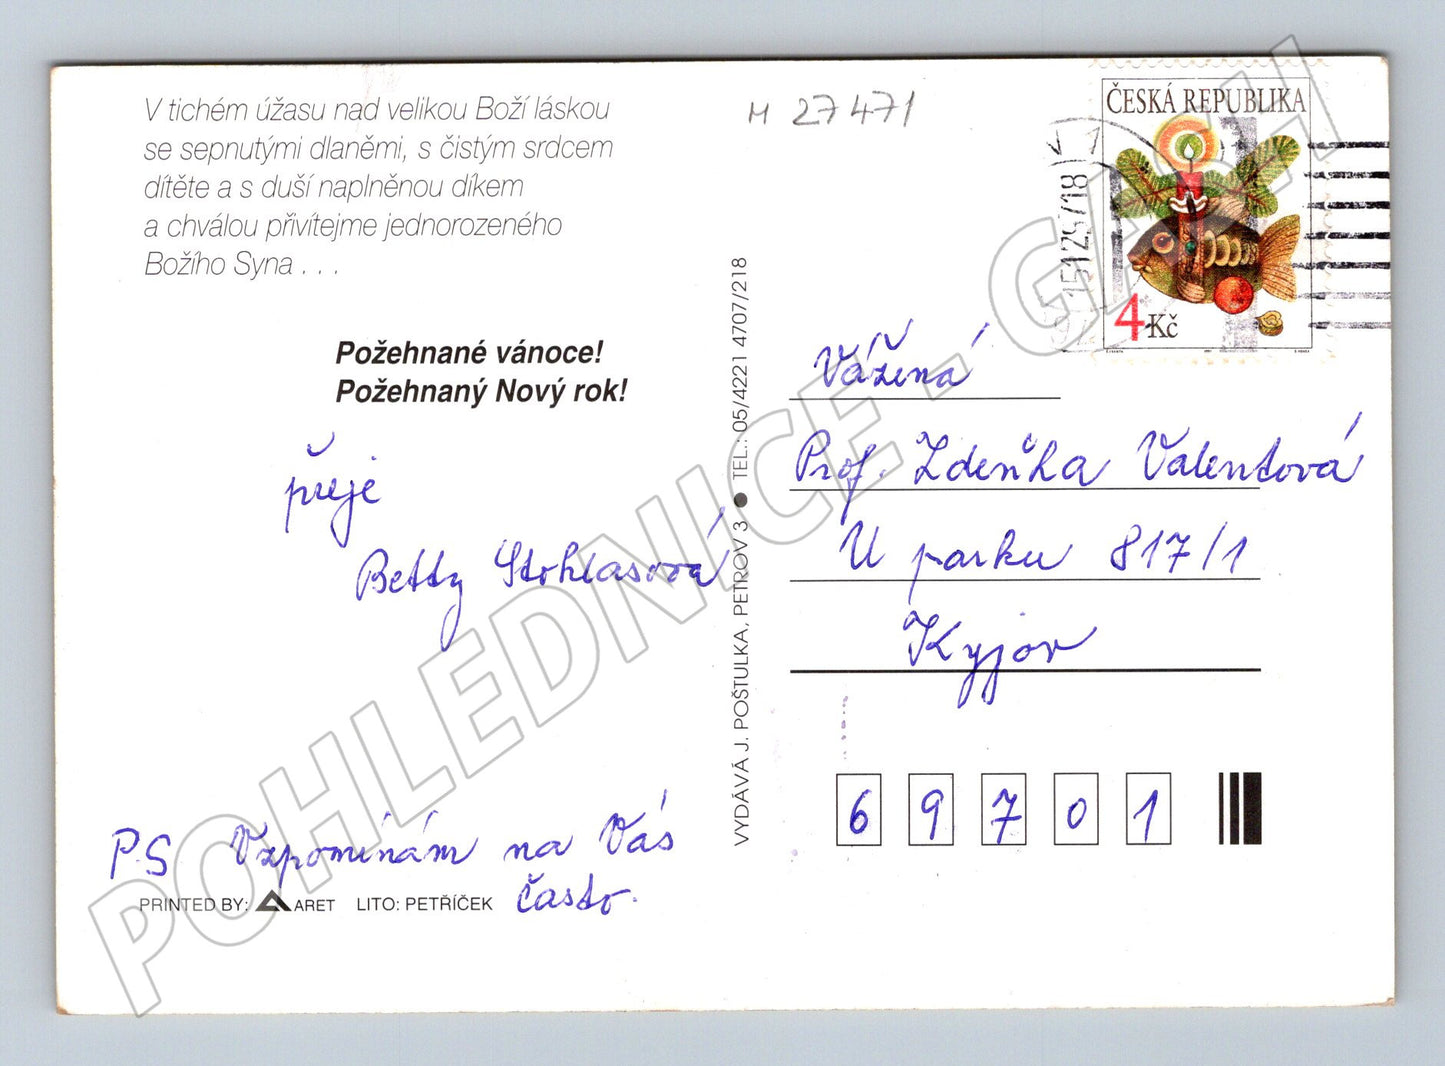 V tichém úžasu nad velikou Boží láskou
se sepnutými dlaněmi, s čistým srdcem
dítěte a s duší naplněnou díkem
a chválou přivítejme jednorozeného
Božího Syna . . .
Požehnané vánoce!
Požehnaný Nový rok!
přeje
Betty Stohlasová
PS Vzpomínám na Vás
často.
PRINTED BY: ARET LITO: PETŘÍČEK
VYDÁVÁ J. POŠTULKA, PETROV 3 ● TEL.: 05/4221 4707/218
M 27471
ČESKÁ REPUBLIKA
4 Kč
Vážená
Prof. Zdeňka Valentová
U parku 817/1
Kyjov
69701
POHLEDNICE - GASH